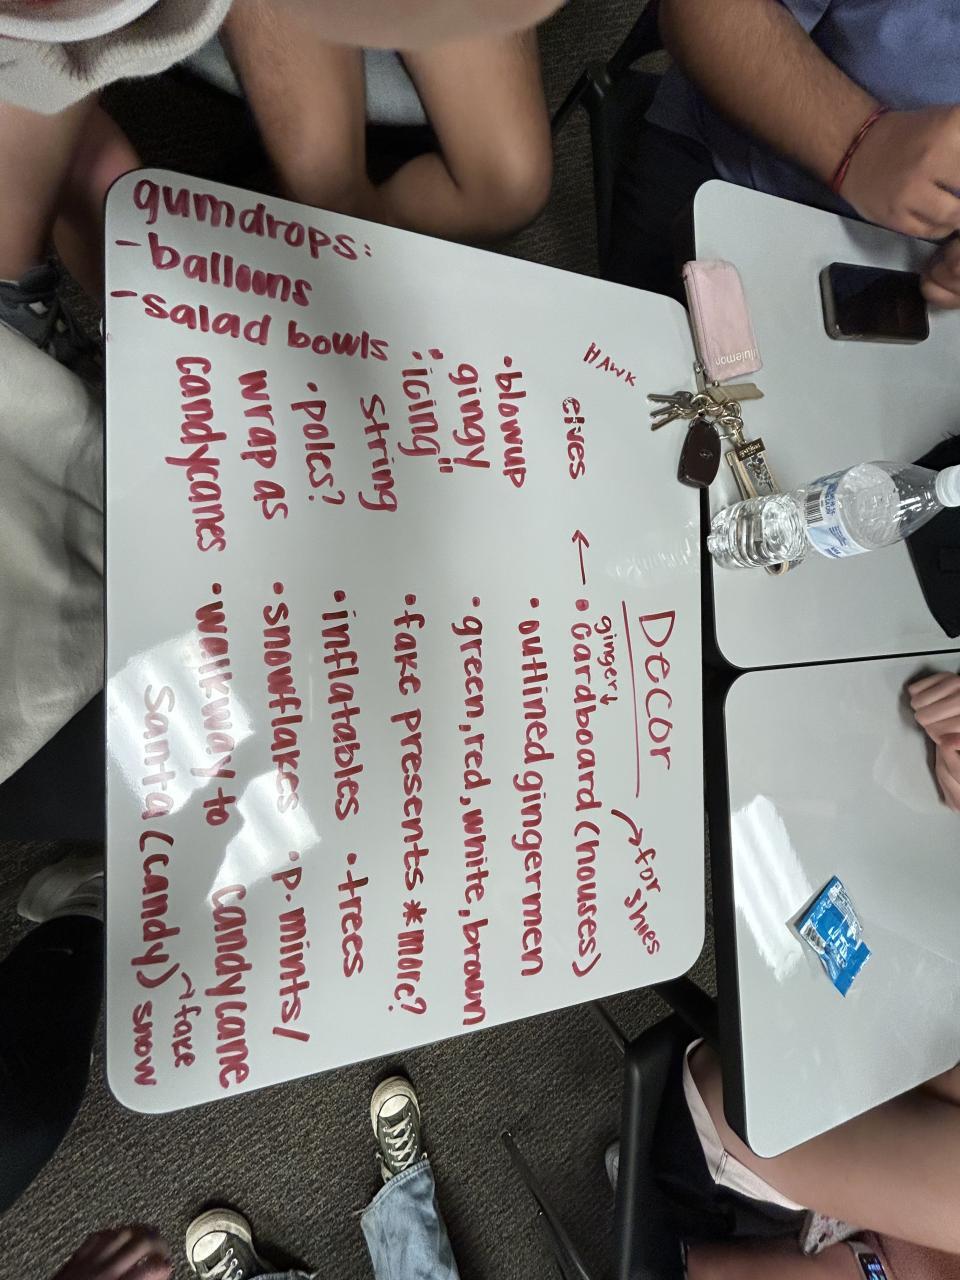 Decor
• cardboard (houses)
gingery
→ for shies
←
• outlined gingermen
• green, red, white, brown
• fake presents * more?
• inflatables • trees
• snowflakes • p. mints/
• walkway to candycane
Santa (candy) snow
→ fake
HAWK
• blowup
gingy
• "icing"
string
• poles?
wrap as
candycanes
gumdrops:
- balloons
- salad bowls
lululemon